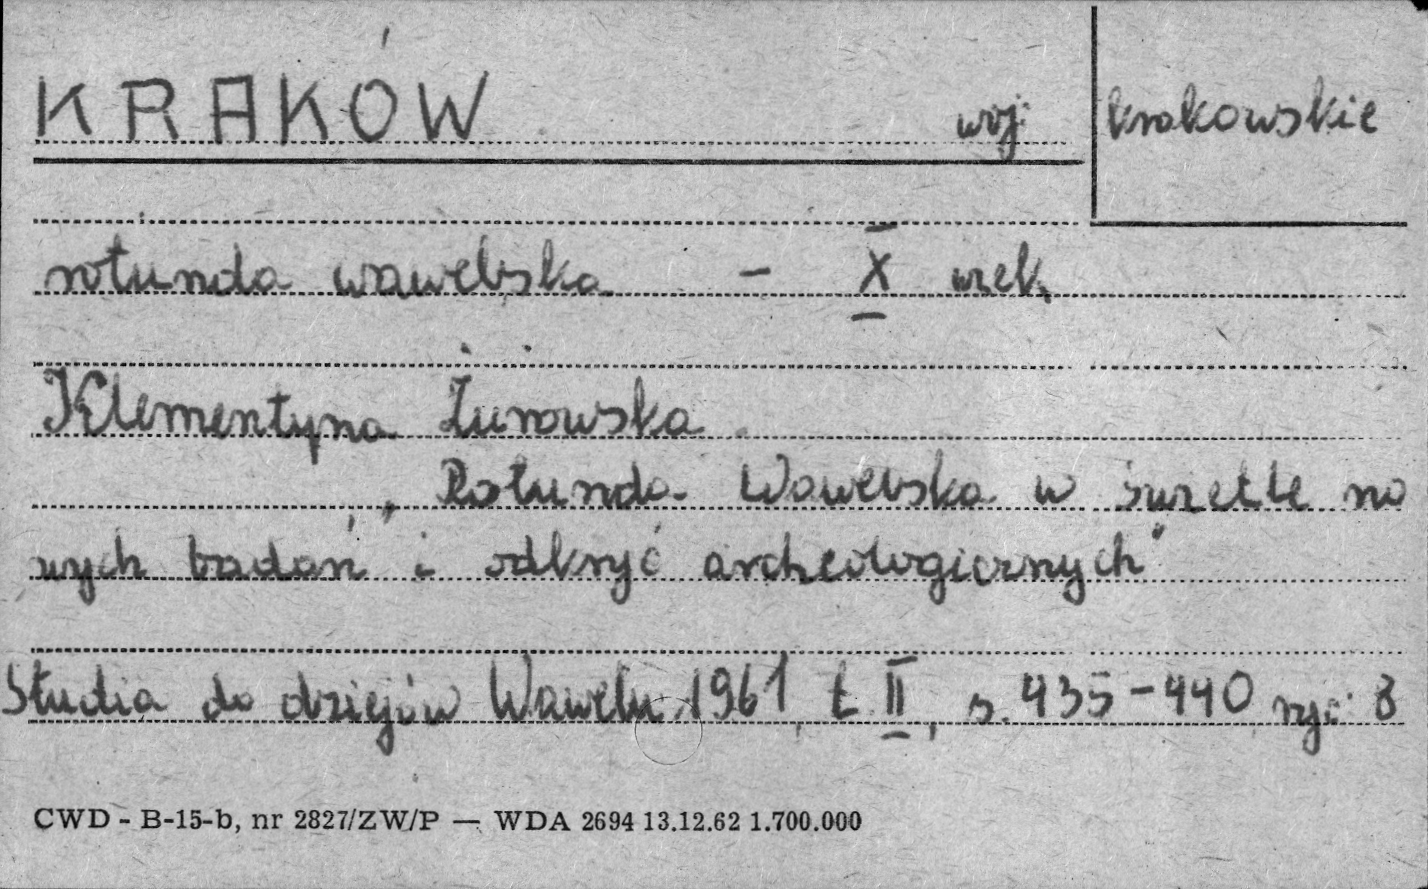 KRAKÓW woj: krakowskie
rotunda wawelska - X wiek.
Klementyna Żurowska
„Rotunda Wawelska w świetle no
wych badań i odkryć archeologicznych"
Studia do dziejów Wawelu 1961, t. II, s. 435-440 ryc: 8
CWD - B-15-b, nr 2827/ZW/P — WDA 2694 13.12.62 1.700.000